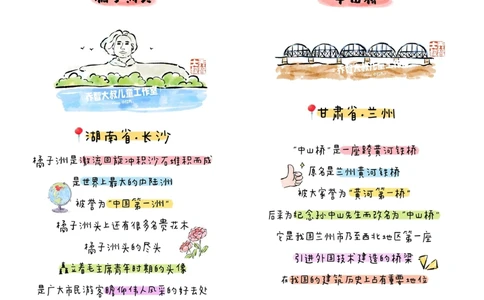 湖南省·长沙
橘子洲是激流回旋冲积沙石堆积而成
是世界上最大的内陆洲
被誉为"中国第一洲"
橘子洲头上还有很多名贵花木
橘子洲头的尽头
矗立着毛主席青年时期的头像
是广大市民游客瞻仰伟人风采的好去处
中山桥
甘肃省·兰州
"中山桥"是一座跨黄河铁桥
原名是兰州黄河铁桥
被大家誉为"黄河第一桥"
后来为纪念孙中山先生而改名为"中山桥"
它是我国兰州市乃至西北地区第一座
引进外国技术建造的桥梁
在我国的建筑历史上占有重要地位